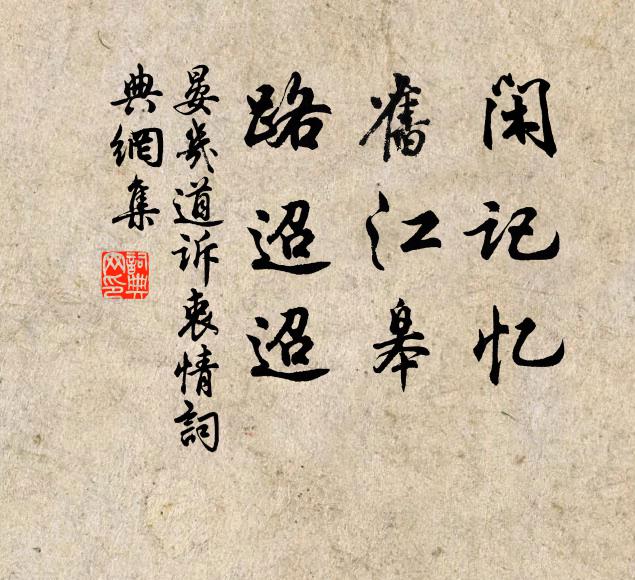 闲记忆
旧江皋
路迢迢
晏几道诉衷情词
典網集
詞典网印